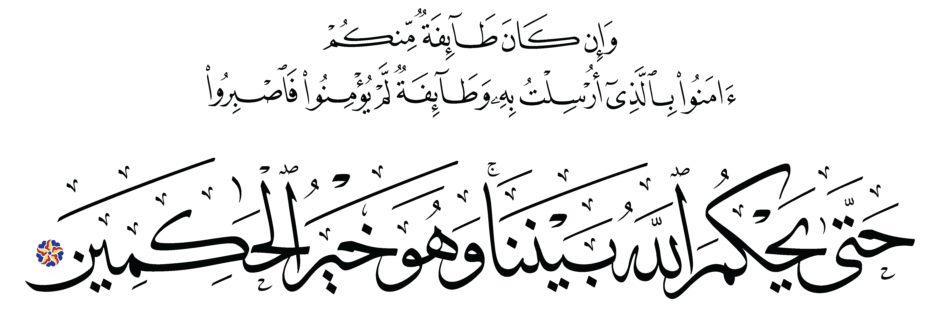 وَإِن كَانَ طَآئِفَةٌ مِّنكُمْ
ءَامَنُوا۟ بِٱلَّذِىٓ أُرْسِلْتُ بِهِۦ وَطَآئِفَةٌ لَّمْ يُؤْمِنُوا۟ فَٱصْبِرُوا۟
حَتَّىٰ يَحْكُمَ ٱللَّهُ بَيْنَنَا ۚ وَهُوَ خَيْرُ ٱلْحَٰكِمِينَ